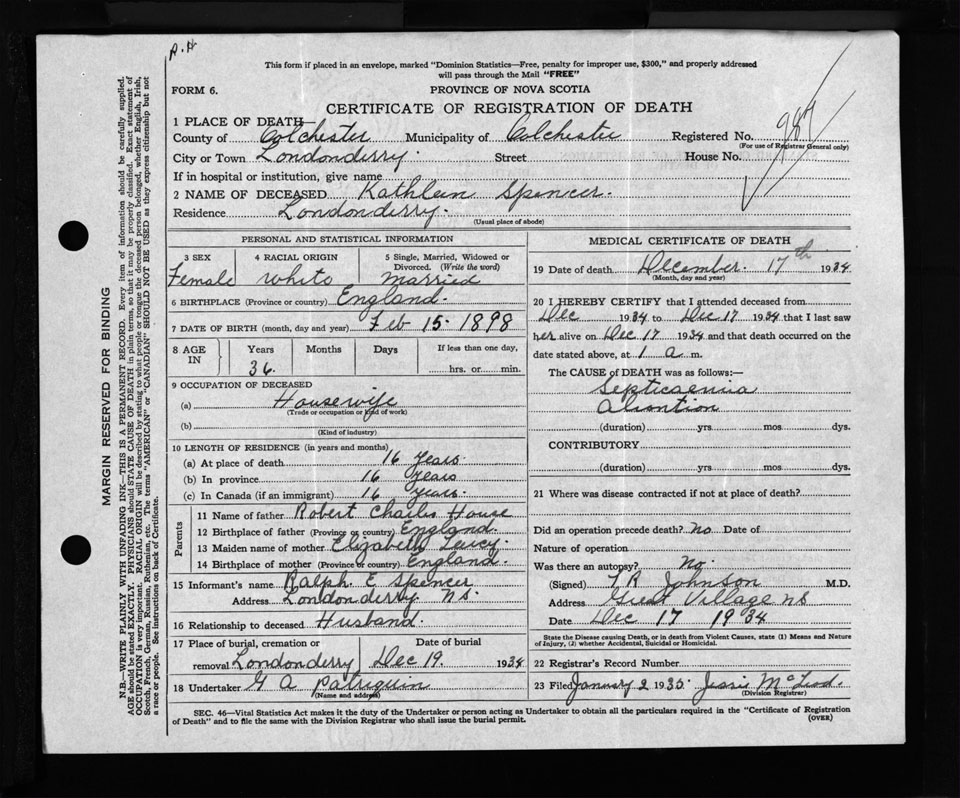 R.H
This form if placed in an envelope, marked "Dominion Statistics—Free, penalty for improper use, $300," and properly addressed
will pass through the Mail "FREE"
FORM 6.
PROVINCE OF NOVA SCOTIA
CERTIFICATE OF REGISTRATION OF DEATH
1 PLACE OF DEATH
County of Colchester Municipality of Colchester Registered No.
(For use of Registrar General only)
City or Town Londonderry. Street House No.
If in hospital or institution, give name
2 NAME OF DECEASED Kathleen Spencer.
Residence Londonderry.
(Usual place of abode)
PERSONAL AND STATISTICAL INFORMATION
3 SEX 4 RACIAL ORIGIN 5 Single, Married, Widowed or
Divorced. (Write the word)
Female white Married
6 BIRTHPLACE (Province or country) England.
7 DATE OF BIRTH (month, day and year) Feb 15. 1898
8 AGE IN Years Months Days If less than one day,
36. hrs. or min.
9 OCCUPATION OF DECEASED
(a) Housewife
(Trade or occupation or kind of work)
(b)
(Kind of industry)
10 LENGTH OF RESIDENCE (in years and months)
(a) At place of death 16 Years.
(b) In province 16 Years
(c) In Canada (if an immigrant) 16 Years.
Parents
11 Name of father Robert Charles House
12 Birthplace of father (Province or country) England.
13 Maiden name of mother Elizabeth
14 Birthplace of mother (Province or country) England.
15 Informant's name Ralph E Spencer
Address Londonderry NS.
16 Relationship to deceased Husband.
17 Place of burial, cremation or Date of burial
removal Londonderry Dec 19. 1934
18 Undertaker G A Patriquin
(Name and address)
MEDICAL CERTIFICATE OF DEATH
19 Date of death December. 17th 1934
(Month, day and year)
20 I HEREBY CERTIFY that I attended deceased from
Dec 1934 to Dec 17 1934 that I last saw
her alive on Dec 17 1934 and that death occurred on the
date stated above, at 1 a m.
The CAUSE of DEATH was as follows:—
Septicaemia
Abortion
(duration) yrs mos dys.
CONTRIBUTORY
(duration) yrs mos dys.
21 Where was disease contracted if not at place of death?
Did an operation precede death? No Date of
Nature of operation
Was there an autopsy? No.
(Signed) T R Johnson M.D.
Address Great Village NS
Date Dec 17 1934
State the Disease causing Death, or in death from Violent Causes, state (1) Means and Nature
of Injury, (2) whether Accidental, Suicidal or Homicidal.
22 Registrar's Record Number
23 Filed January 2 1935. Jessie McLeod.
(Division Registrar)
SEC. 46—Vital Statistics Act makes it the duty of the Undertaker or person acting as Undertaker to obtain all the particulars required in the "Certificate of Registration
of Death" and to file the same with the Division Registrar who shall issue the burial permit.
(OVER)
MARGIN RESERVED FOR BINDING
N.B.—WRITE PLAINLY WITH UNFADING INK—THIS IS A PERMANENT RECORD. Every item of information should be carefully supplied.
AGE should be stated EXACTLY. PHYSICIANS should STATE CAUSE OF DEATH in plain terms, so that it may be properly classified. Exact statement of
OCCUPATION is very important. RACIAL ORIGIN will be described by stating to what people or tongue the deceased person belonged, whether English, Irish,
Scotch, French, German, Russian, Ruthenian, etc. The terms "AMERICAN" or "CANADIAN" SHOULD NOT BE USED as they express citizenship but not
a race or people. See instructions on back of Certificate.